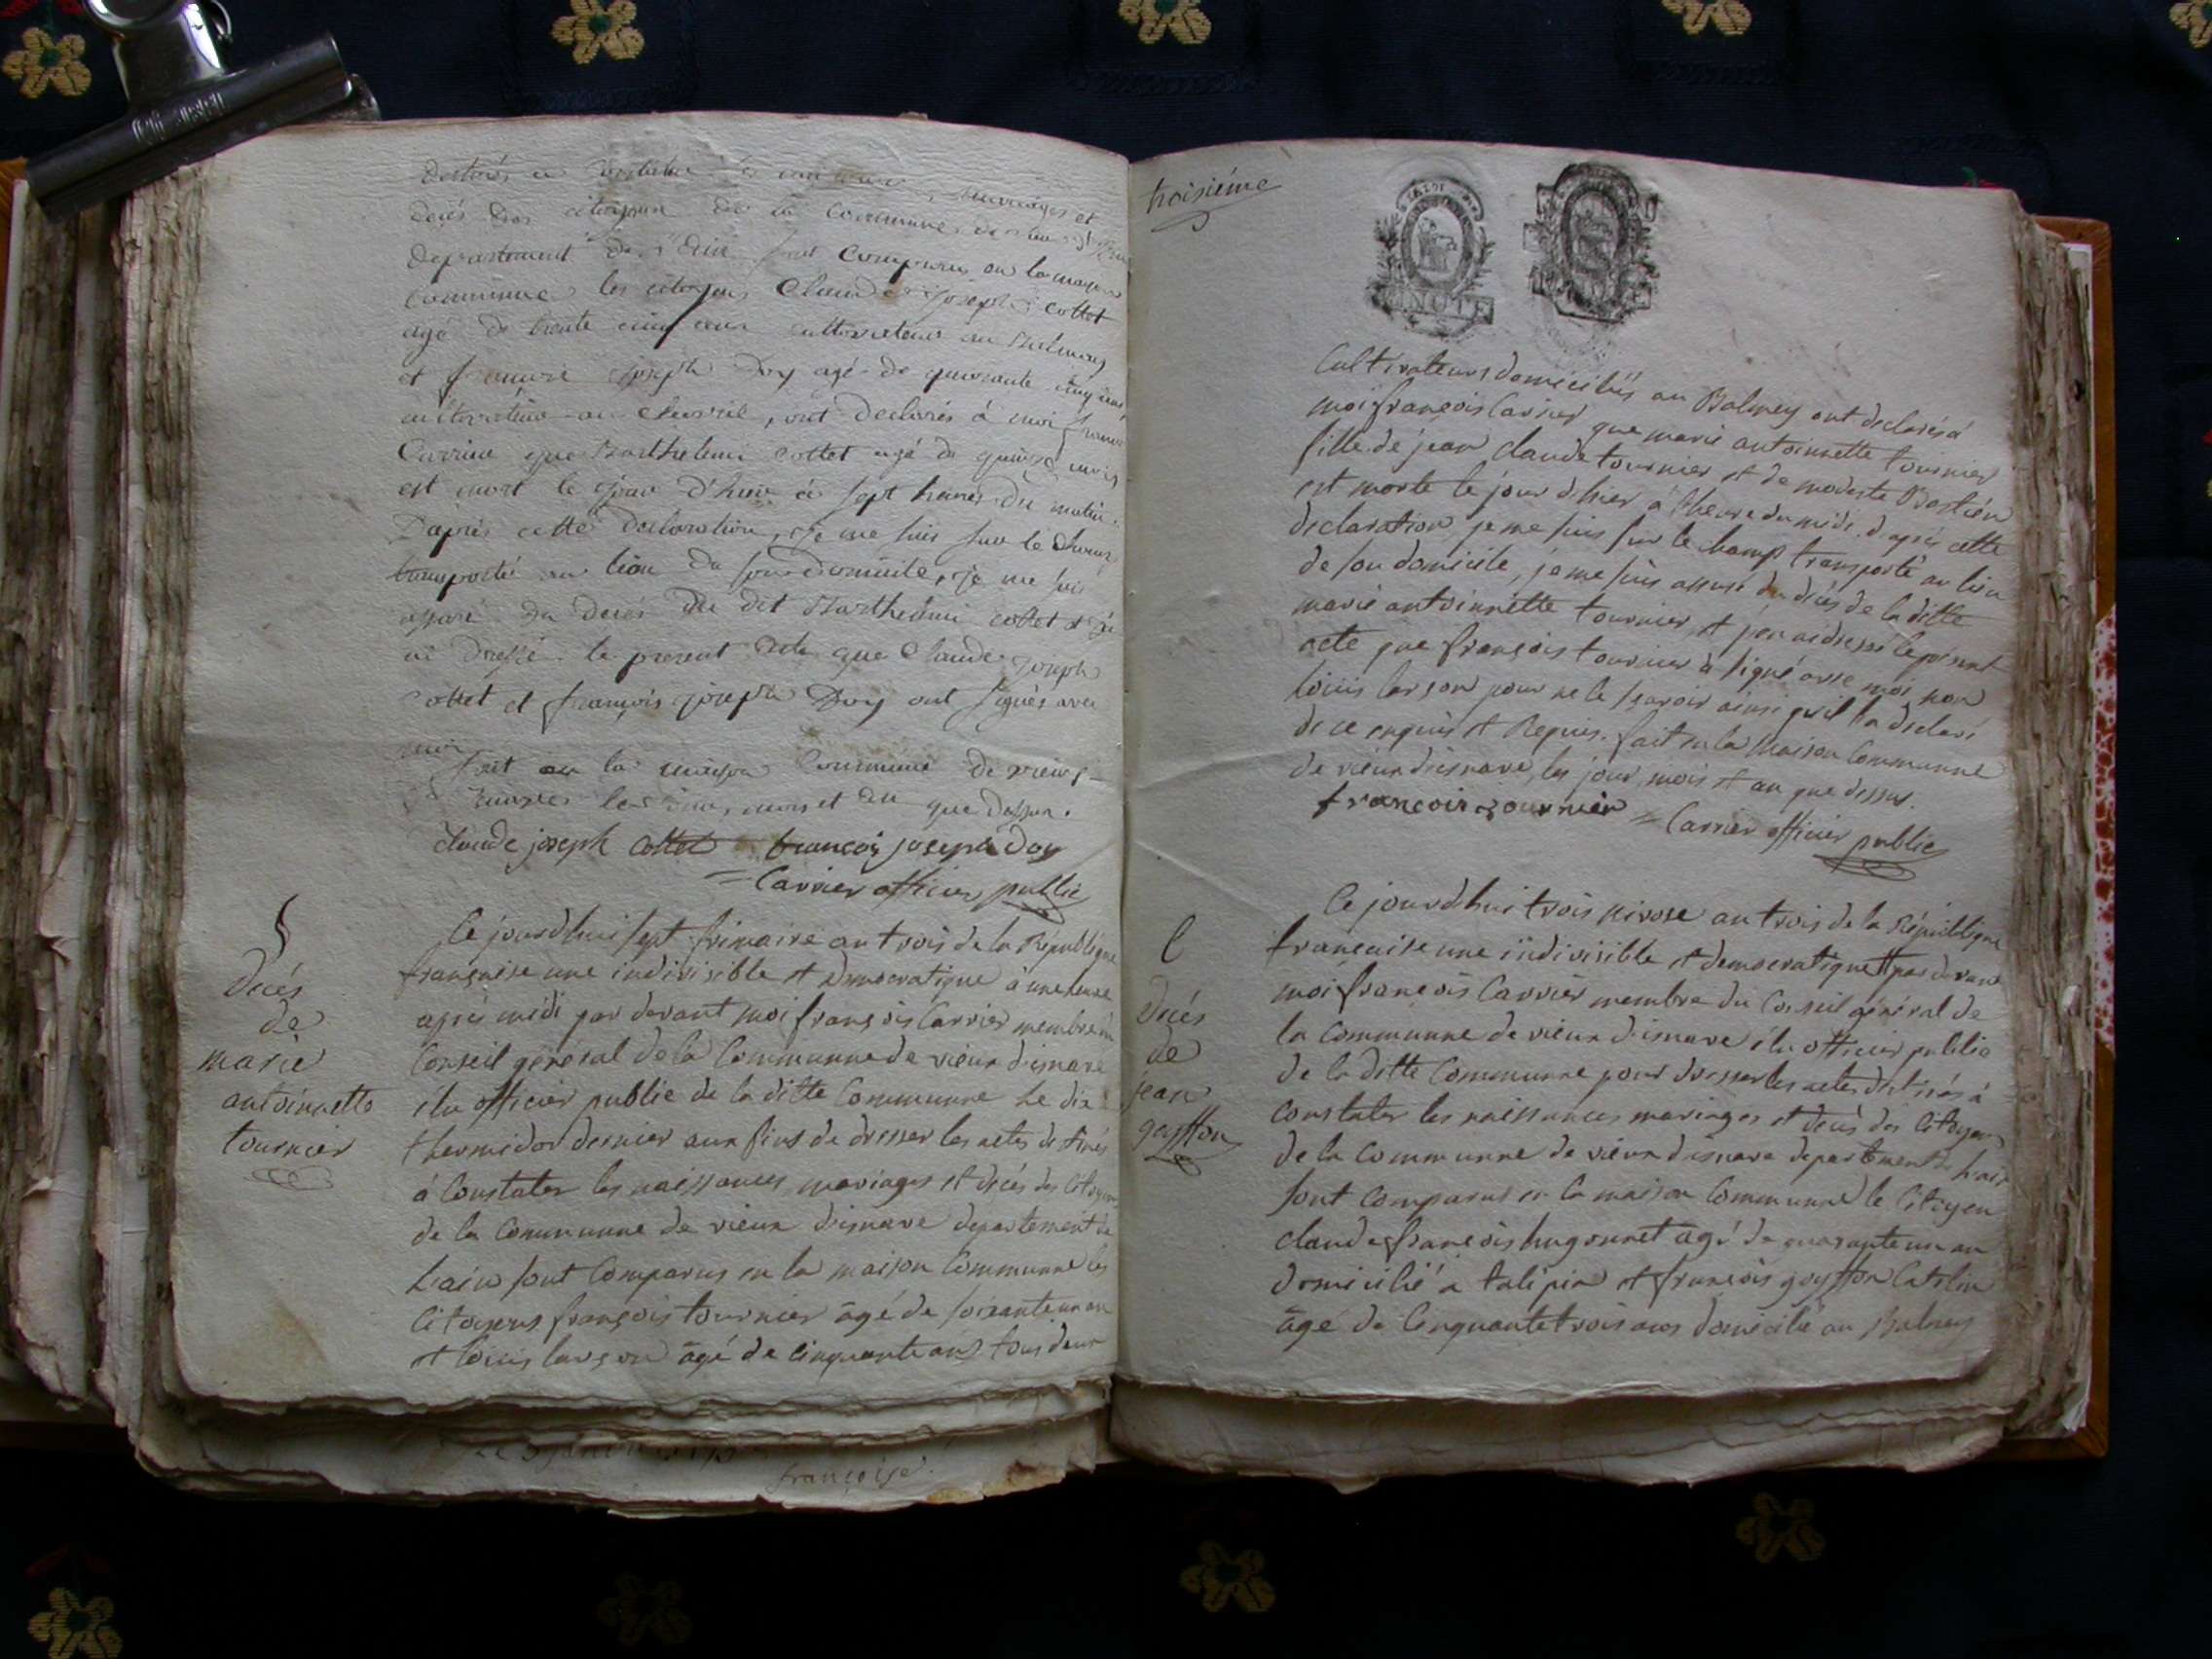 mariages et
decés des citoyens de la Commune de
departement de l'ain sont comparus en la maison
commune les citoyens Claude joseph cottet
agé de trente cinq ans cultivateur au Balmay
et françois joseph Doy agé de quarante cinq ans
cultivateur au chevril, ont declarés à moi françois
Carrier que Barthelemi cottet agé de quinze mois
est mort le jour d'hier à sept heures du matin.
D'après cette declaration, je me suis sur le champ
transporté au lieu de son domicile, je me suis
assuré du decés du dit Barthelemi cottet et j'ai
dressé le present acte que Claude joseph
cottet et françois joseph Doy ont signés avec
moi
fait en la maison Commune de vieux
les jour, mois et an que dessus.
claude joseph cottet françois joseph Doy
= Carrier officier public
§
Decés
de
marie
antoinette
tournier
Ce jourd'hui sept frimaire an trois de la République
française une indivisible et democratique à une heure
après midi par devant moi françois Carrier membre du
Conseil géneral de la Communne de vieux d'isnave
élu officier public de la ditte Communne le dix
thermidor dernier aux fins de dresser les actes destinés
à Constater les naissances mariages et decés des Citoyens
de la Communne de vieux d'isnave departement de
L'ain sont Comparus en la maison Communne les
Citoyens françois tournier âgé de soixante un an
et louis lançon âgé de cinquante ans tous deux
françoise
troisiéme
Cultivateurs domiciliés au Balmey ont declarés à
moi françois Carrier que marie antoinette tournier
fille de jean claude tournier et de modeste Bastien
est morte le jour d'hier à l'heure du midi. d'après cette
declaration, je me suis sur le champ transporté au lieu
de son domicile, je me suis assuré du décés de la ditte
marie antoinette tournier et j'en ai dressé le présent
acte que françois tournier à signé avec moi non
louis lançon pour ne le sçavoir ainsi qu'il l'a declaré
de ce enquis et Requis. fait en la Maison Communne
de vieux d'isnave, les jour, mois et an que dessus.
francois tournier = Carrier officier public
C
Décés
de
jean
goyffon
Ce jourd'hui trois nivose an trois de la République
francaise une indivisible et democratique par devant
moi françois Carrier membre du Conseil général de
la Communne de vieux d'isnave élu officier public
de la ditte Communne pour dresser les actes destinés à
constater les naissances mariages et decés des Citoyens
de la Communne de vieux d'isnave departement de L'ain
sont comparus en la maison Communne le Citoyen
claude françois hugonnet agé de quarante un an
domicilié a talipia et françois goyffon Catelin
âgé de Cinquante trois ans domicilié au Balmey